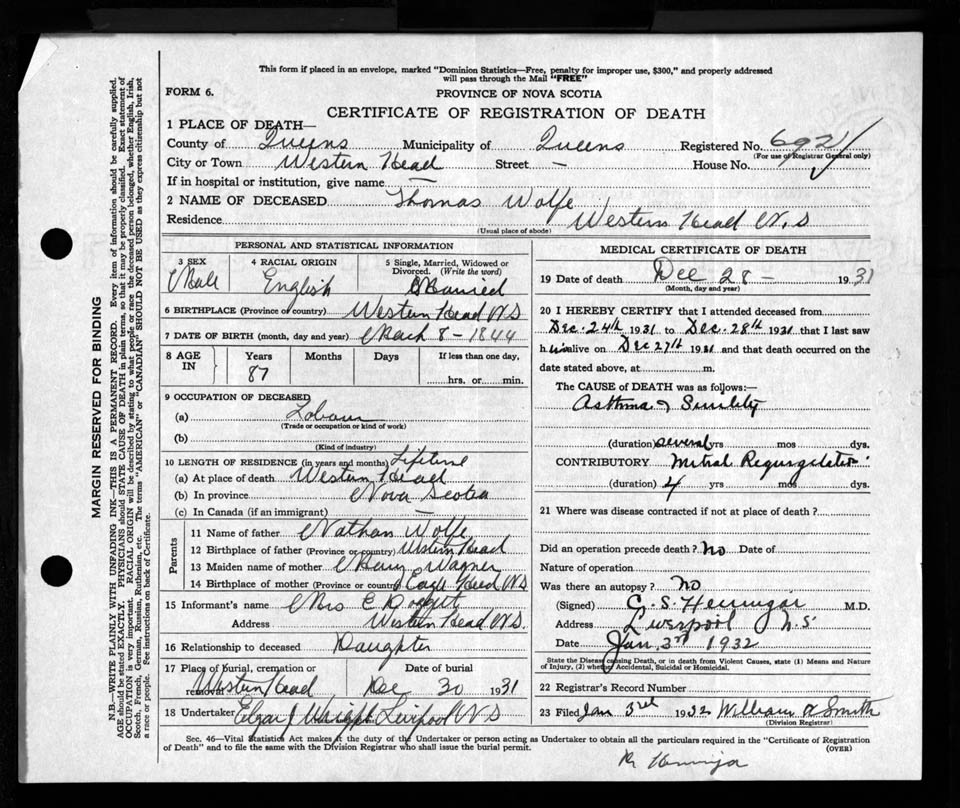 This form if placed in an envelope, marked "Dominion Statistics—Free, penalty for improper use, $300," and properly addressed
will pass through the Mail "FREE"
FORM 6.
PROVINCE OF NOVA SCOTIA
CERTIFICATE OF REGISTRATION OF DEATH
1 PLACE OF DEATH—
County of Queens Municipality of Queens Registered No. 692
(For use of Registrar General only)
City or Town Western Head Street — House No.
If in hospital or institution, give name —
2 NAME OF DECEASED Thomas Wolfe
Residence Western Head N.S
(Usual place of abode)
PERSONAL AND STATISTICAL INFORMATION
3 SEX 4 RACIAL ORIGIN 5 Single, Married, Widowed or
Divorced. (Write the word)
Male English Married
6 BIRTHPLACE (Province or country) Western Head N.S
7 DATE OF BIRTH (month, day and year) March 8 - 1844
8 AGE IN Years Months Days If less than one day,
87 hrs. or min.
9 OCCUPATION OF DECEASED
(a)
(Trade or occupation or kind of work)
(b)
(Kind of industry)
10 LENGTH OF RESIDENCE (in years and months) Lifetime
(a) At place of death Western Head
(b) In province Nova Scotia
(c) In Canada (if an immigrant) —
Parents
11 Name of father Nathan Wolfe
12 Birthplace of father (Province or country) Western Head
13 Maiden name of mother Mary Wagner
14 Birthplace of mother (Province or country) Eagle Head NS
15 Informant's name Mrs E
Address Western Head N.S.
16 Relationship to deceased Daughter
17 Place of burial, cremation or
removal Western Head
Date of burial
Dec 30 1931
18 Undertaker Elgar J Wright Liverpool N S
MEDICAL CERTIFICATE OF DEATH
19 Date of death Dec 28 - 1931
(Month, day and year)
20 I HEREBY CERTIFY that I attended deceased from
Dec. 24th 1931 to Dec. 28th 1931 that I last saw
him alive on Dec 27th 1931 and that death occurred on the
date stated above, at m.
The CAUSE of DEATH was as follows:—
Asthma & Senility
(duration) several yrs mos dys.
CONTRIBUTORY Mitral Regurgitation
(duration) 4 yrs mos dys.
21 Where was disease contracted if not at place of death?
Did an operation precede death? No Date of
Nature of operation
Was there an autopsy? No
(Signed) C. S. Hennigar M.D.
Address Liverpool N.S.
Date Jan. 3rd 1932
State the Disease causing Death, or in death from Violent Causes, state (1) Means and Nature
of Injury, (2) whether Accidental, Suicidal or Homicidal.
22 Registrar's Record Number
23 Filed Jan 3rd 1932 William A Smith
(Division Registrar)
Sec. 46—Vital Statistics Act makes it the duty of the Undertaker or person acting as Undertaker to obtain all the particulars required in the "Certificate of Registration
of Death" and to file the same with the Division Registrar who shall issue the burial permit.
(OVER)
MARGIN RESERVED FOR BINDING
N.B.—WRITE PLAINLY WITH UNFADING INK—THIS IS A PERMANENT RECORD. Every item of information should be carefully supplied.
AGE should be stated EXACTLY. PHYSICIANS should STATE CAUSE OF DEATH in plain terms, so that it may be properly classified. Exact statement of
OCCUPATION is very important. RACIAL ORIGIN will be described by stating to what people or race the deceased person belonged, whether English, Irish,
Scotch, French, German, Russian, Ruthenian, etc. The terms "AMERICAN" or "CANADIAN" SHOULD NOT BE USED as they express citizenship but not
a race or people. Fee instructions on back of Certificate.